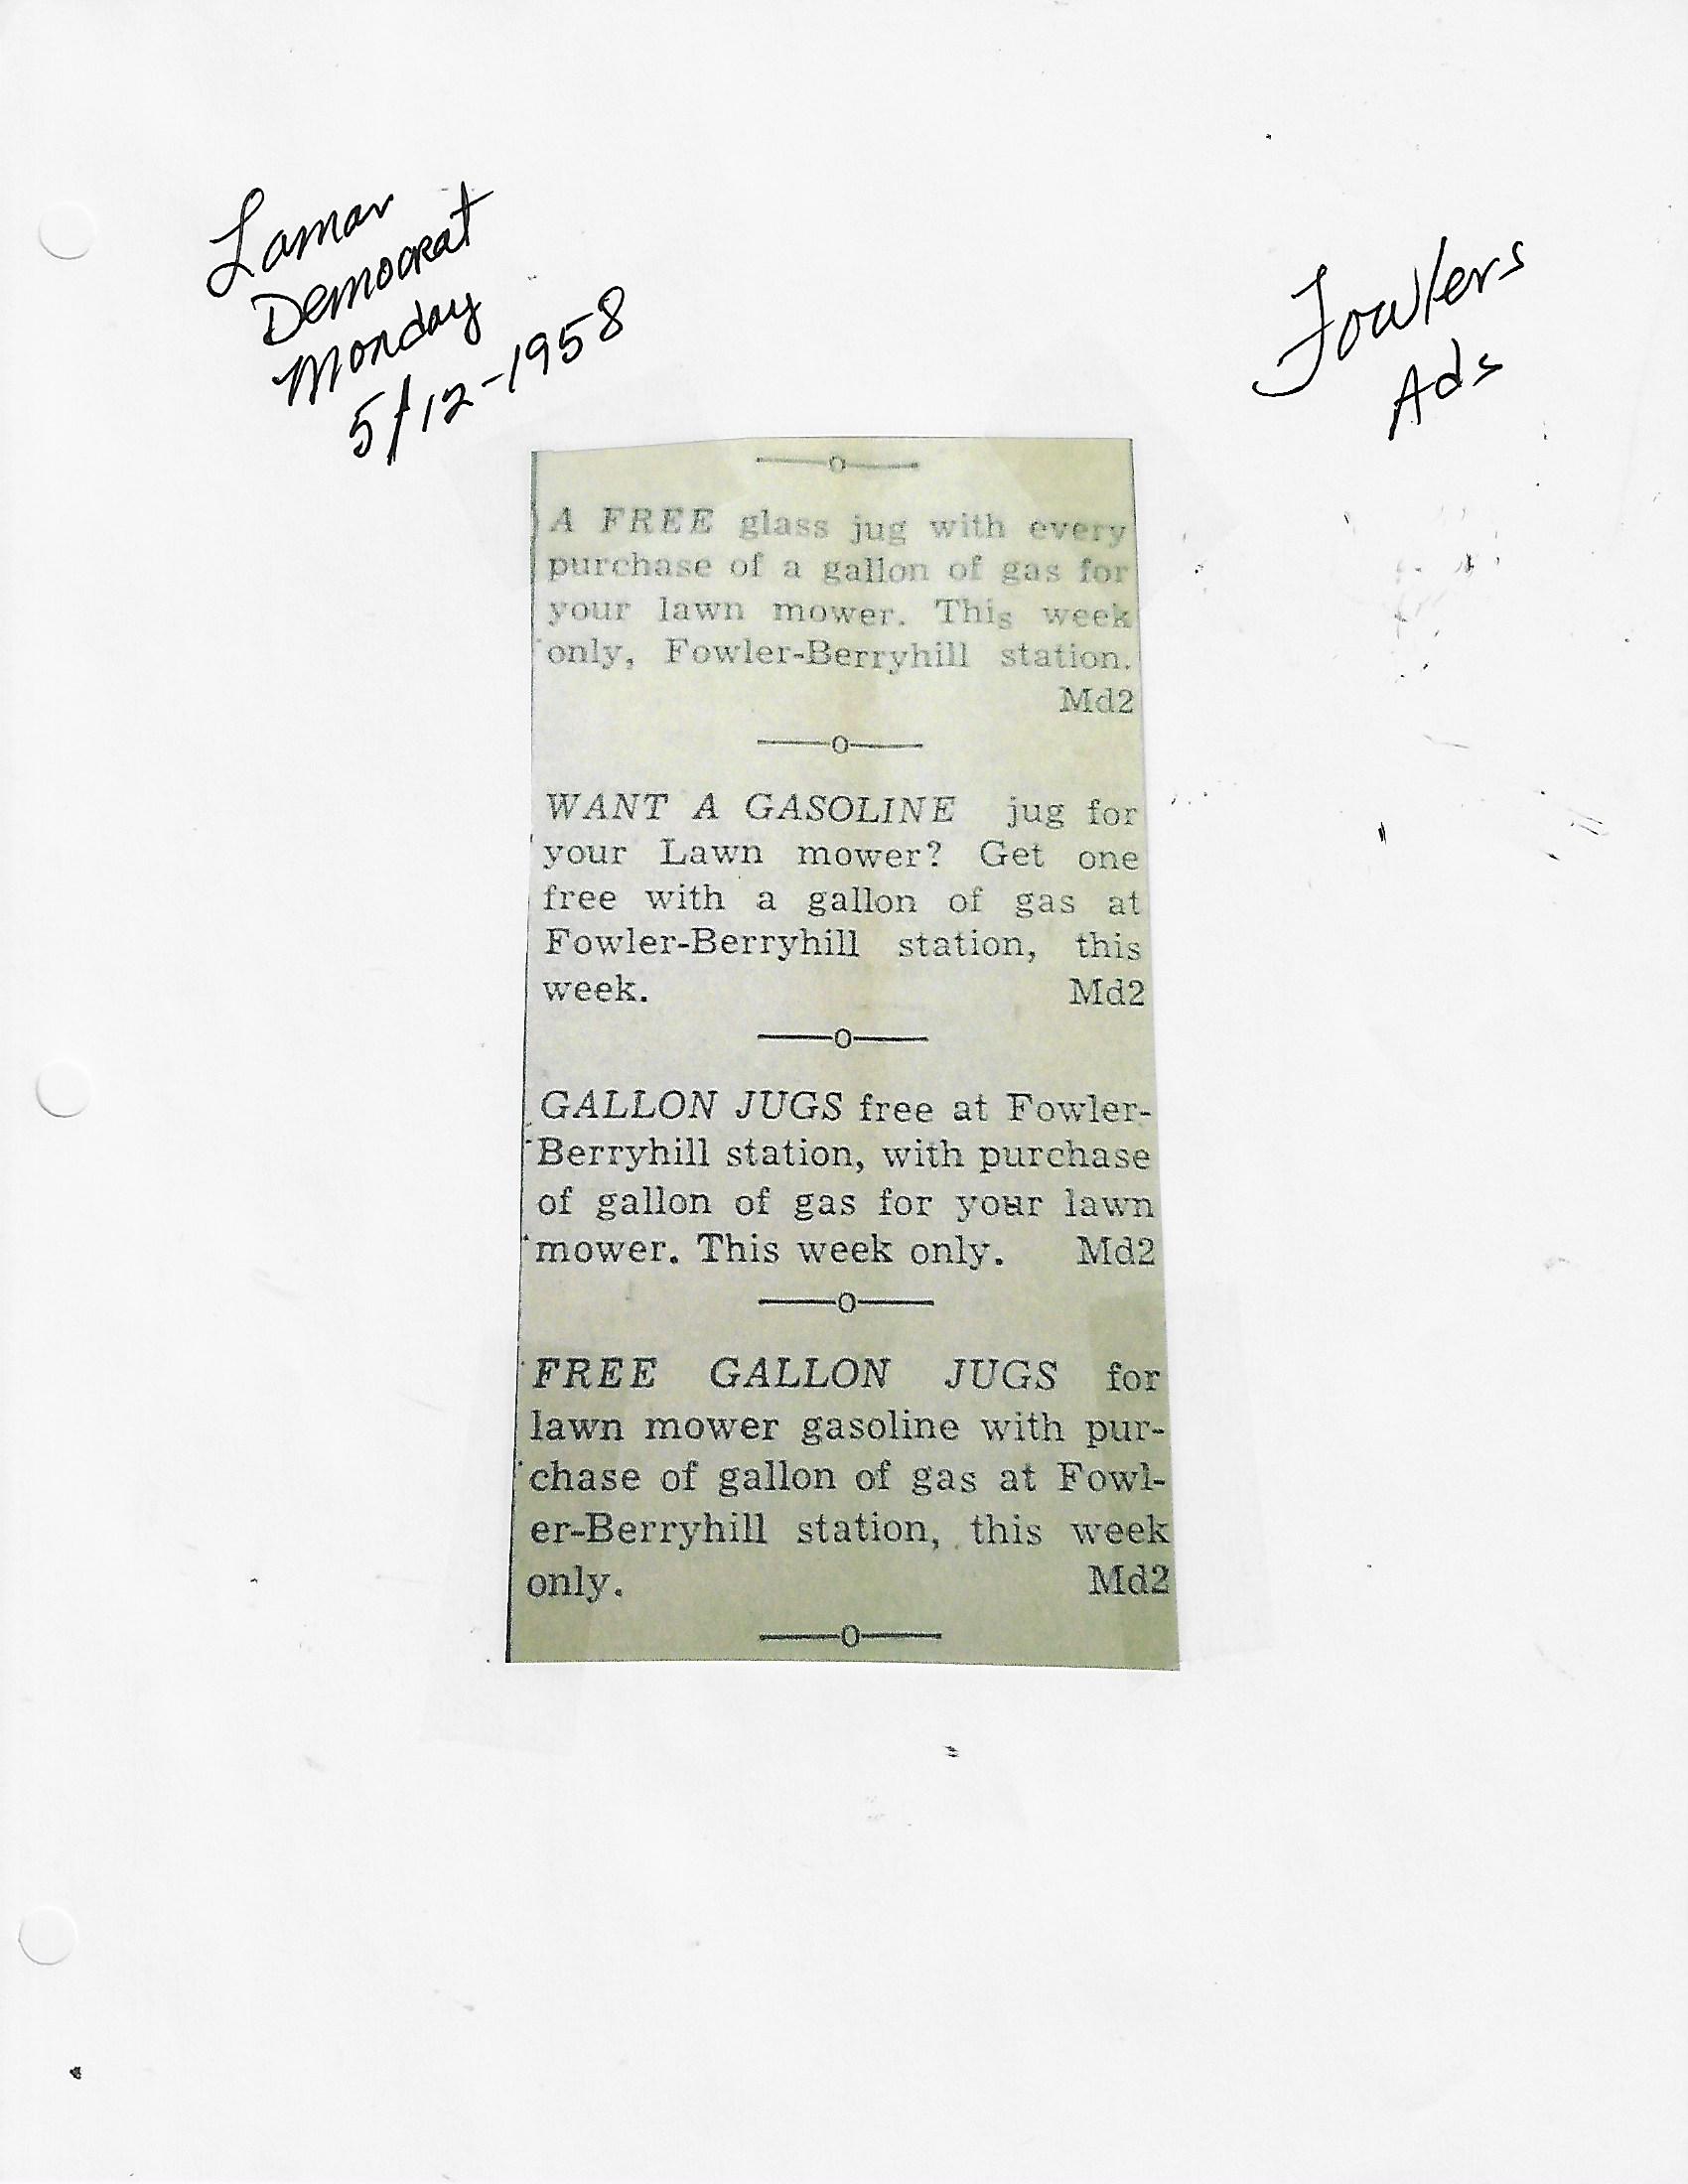 Lamar
Democrat
Monday
5/12-1958
Fowlers
Ads
A FREE glass jug with every
purchase of a gallon of gas for
your lawn mower. This week
only, Fowler-Berryhill station.
Md2
WANT A GASOLINE jug for
your Lawn mower? Get one
free with a gallon of gas at
Fowler-Berryhill station, this
week. Md2
GALLON JUGS free at Fowler-
Berryhill station, with purchase
of gallon of gas for your lawn
mower. This week only. Md2
FREE GALLON JUGS for
lawn mower gasoline with pur-
chase of gallon of gas at Fowl-
er-Berryhill station, this week
only. Md2